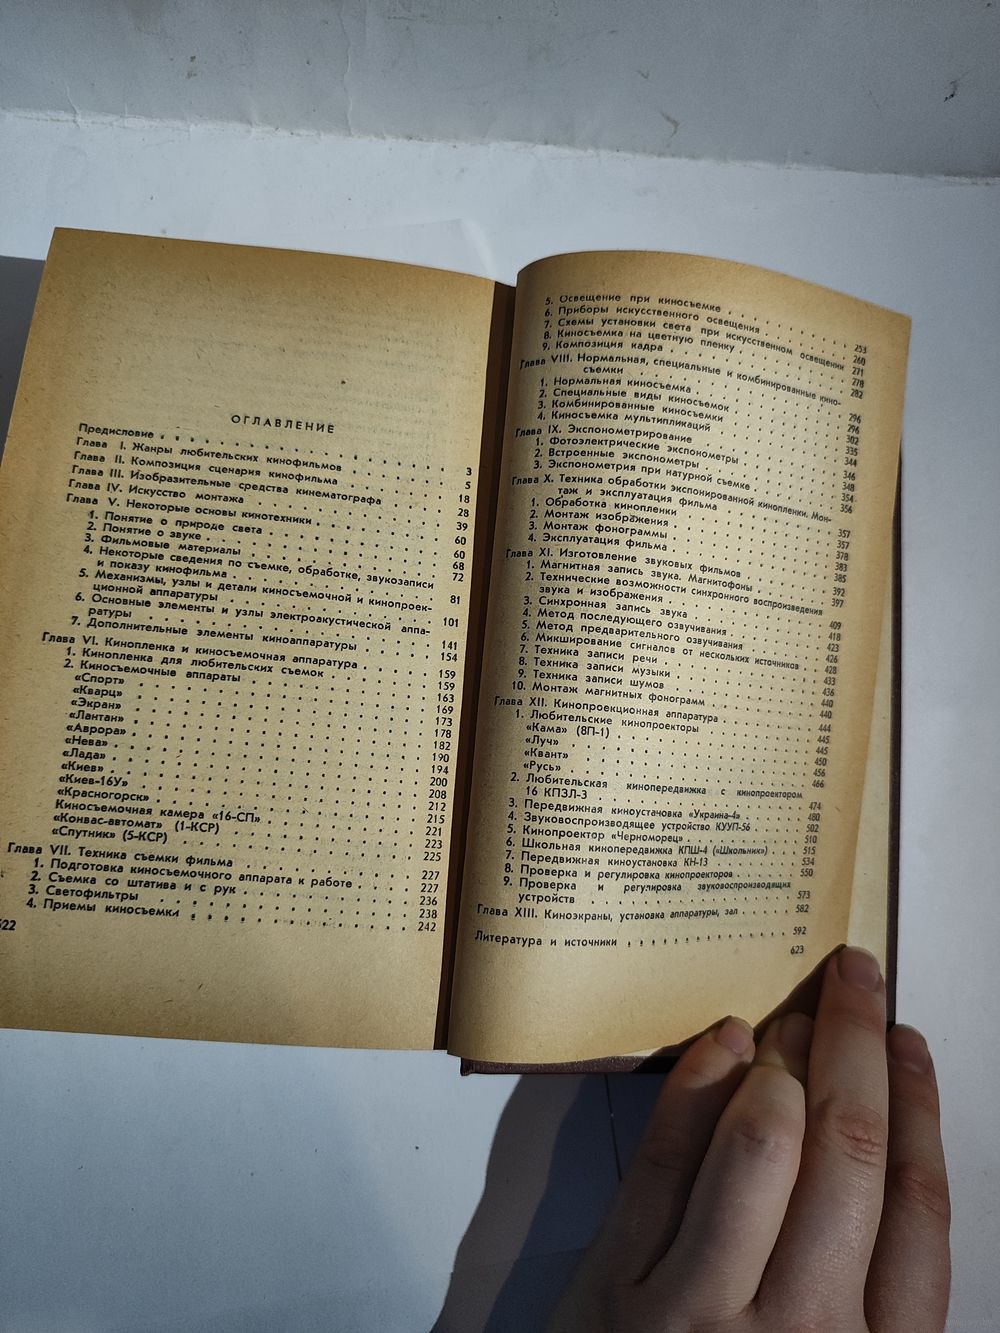 ОГЛАВЛЕНИЕ
Предисловие 3
Глава I. Жанры любительских кинофильмов 5
Глава II. Композиция сценария кинофильма 18
Глава III. Изобразительные средства кинематографа 28
Глава IV. Искусство монтажа 39
Глава V. Некоторые основы кинотехники 60
1. Понятие о природе света 60
2. Понятие о звуке 68
3. Фильмовые материалы 72
4. Некоторые сведения по съемке, обработке, звукозаписи
и показу кинофильма 81
5. Механизмы, узлы и детали киносъемочной и кинопроек-
ционной аппаратуры 101
6. Основные элементы и узлы электроакустической аппа-
ратуры 141
7. Дополнительные элементы киноаппаратуры 154
Глава VI. Кинопленка и киносъемочная аппаратура 159
1. Кинопленка для любительских съемок 159
2. Киносъемочные аппараты 163
«Спорт» 169
«Кварц» 173
«Экран» 178
«Лантан» 182
«Аврора» 190
«Нева» 194
«Лада» 200
«Киев» 208
«Киев-16У» 212
«Красногорск» 215
Киносъемочная камера «16-СП» 221
«Конвас-автомат» (1-КСР) 223
«Спутник» (5-КСР) 225
Глава VII. Техника съемки фильма 227
1. Подготовка киносъемочного аппарата к работе 227
2. Съемка со штатива и с рук 236
3. Светофильтры 238
4. Приемы киносъемки 242
522
5. Освещение при киносъемке 253
6. Приборы искусственного освещения 260
7. Схемы установки света при искусственном освещении 271
8. Киносъемка на цветную пленку 278
9. Композиция кадра 282
Глава VIII. Нормальная, специальные и комбинированные кино-
съемки 296
1. Нормальная киносъемка 296
2. Специальные виды киносъемок 302
3. Комбинированные киносъемки 335
4. Киносъемка мультипликаций 344
Глава IX. Экспонометрирование 346
1. Фотоэлектрические экспонометры 348
2. Встроенные экспонометры 354
3. Экспонометрия при натурной съемке 356
Глава X. Техника обработки экспонированной кинопленки. Мон-
таж и эксплуатация фильма 357
1. Обработка кинопленки 357
2. Монтаж изображения 378
3. Монтаж фонограммы 383
4. Эксплуатация фильма 385
Глава XI. Изготовление звуковых фильмов 392
1. Магнитная запись звука. Магнитофоны 397
2. Технические возможности синхронного воспроизведения
звука и изображения 409
3. Синхронная запись звука 418
4. Метод последующего озвучивания 423
5. Метод предварительного озвучивания 426
6. Микширование сигналов от нескольких источников 428
7. Техника записи речи 433
8. Техника записи музыки 436
9. Техника записи шумов 440
10. Монтаж магнитных фонограмм 440
Глава XII. Кинопроекционная аппаратура 444
1. Любительские кинопроекторы 445
«Кама» (8П-1) 445
«Луч» 450
«Квант» 456
«Русь» 466
2. Любительская кинопередвижка с кинопроектором
16 КПЗЛ-3 474
3. Передвижная киноустановка «Украина-4» 480
4. Звуковоспроизводящее устройство КУУП-56 502
5. Кинопроектор «Черноморец» 510
6. Школьная кинопередвижка КПШ-4 («Школьник») 515
7. Передвижная киноустановка КН-13 534
8. Проверка и регулировка кинопроекторов 550
9. Проверка и регулировка звуковоспроизводящих
устройств 573
Глава XIII. Киноэкраны, установка аппаратуры, зал 582
Литература и источники 592
623